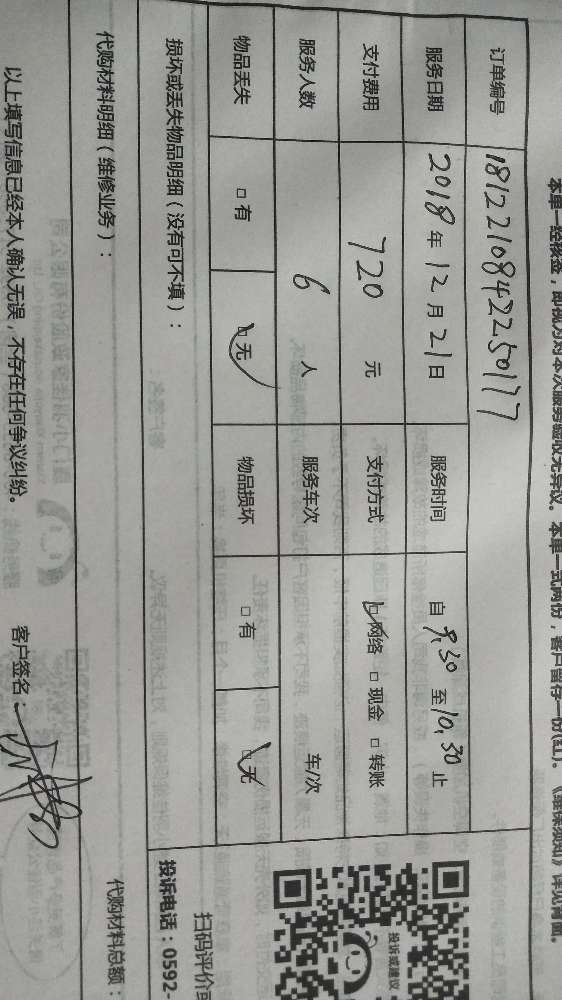 本单一经核金，即视为对本次服务验收无异议。本单一式两份，客户留存一份(红)。《维保须知》详见背面。
订单编号 1812210842250177
服务日期 2018年12月21日 服务时间 自 9,30 至 10,30 止
支付费用 720 元 支付方式 □网络 □现金 □转账
服务人数 6 人 服务车次 车/次
物品丢失 □有 □无 物品损坏 □有 □无
损坏或丢失物品明细（没有可不填）：
代购材料明细（维修业务）： 代购材料总额：
以上填写信息已经本人确认无误，不存在任何争议纠纷。 客户签名：
投诉或建议
扫码评价
投诉电话：0592-